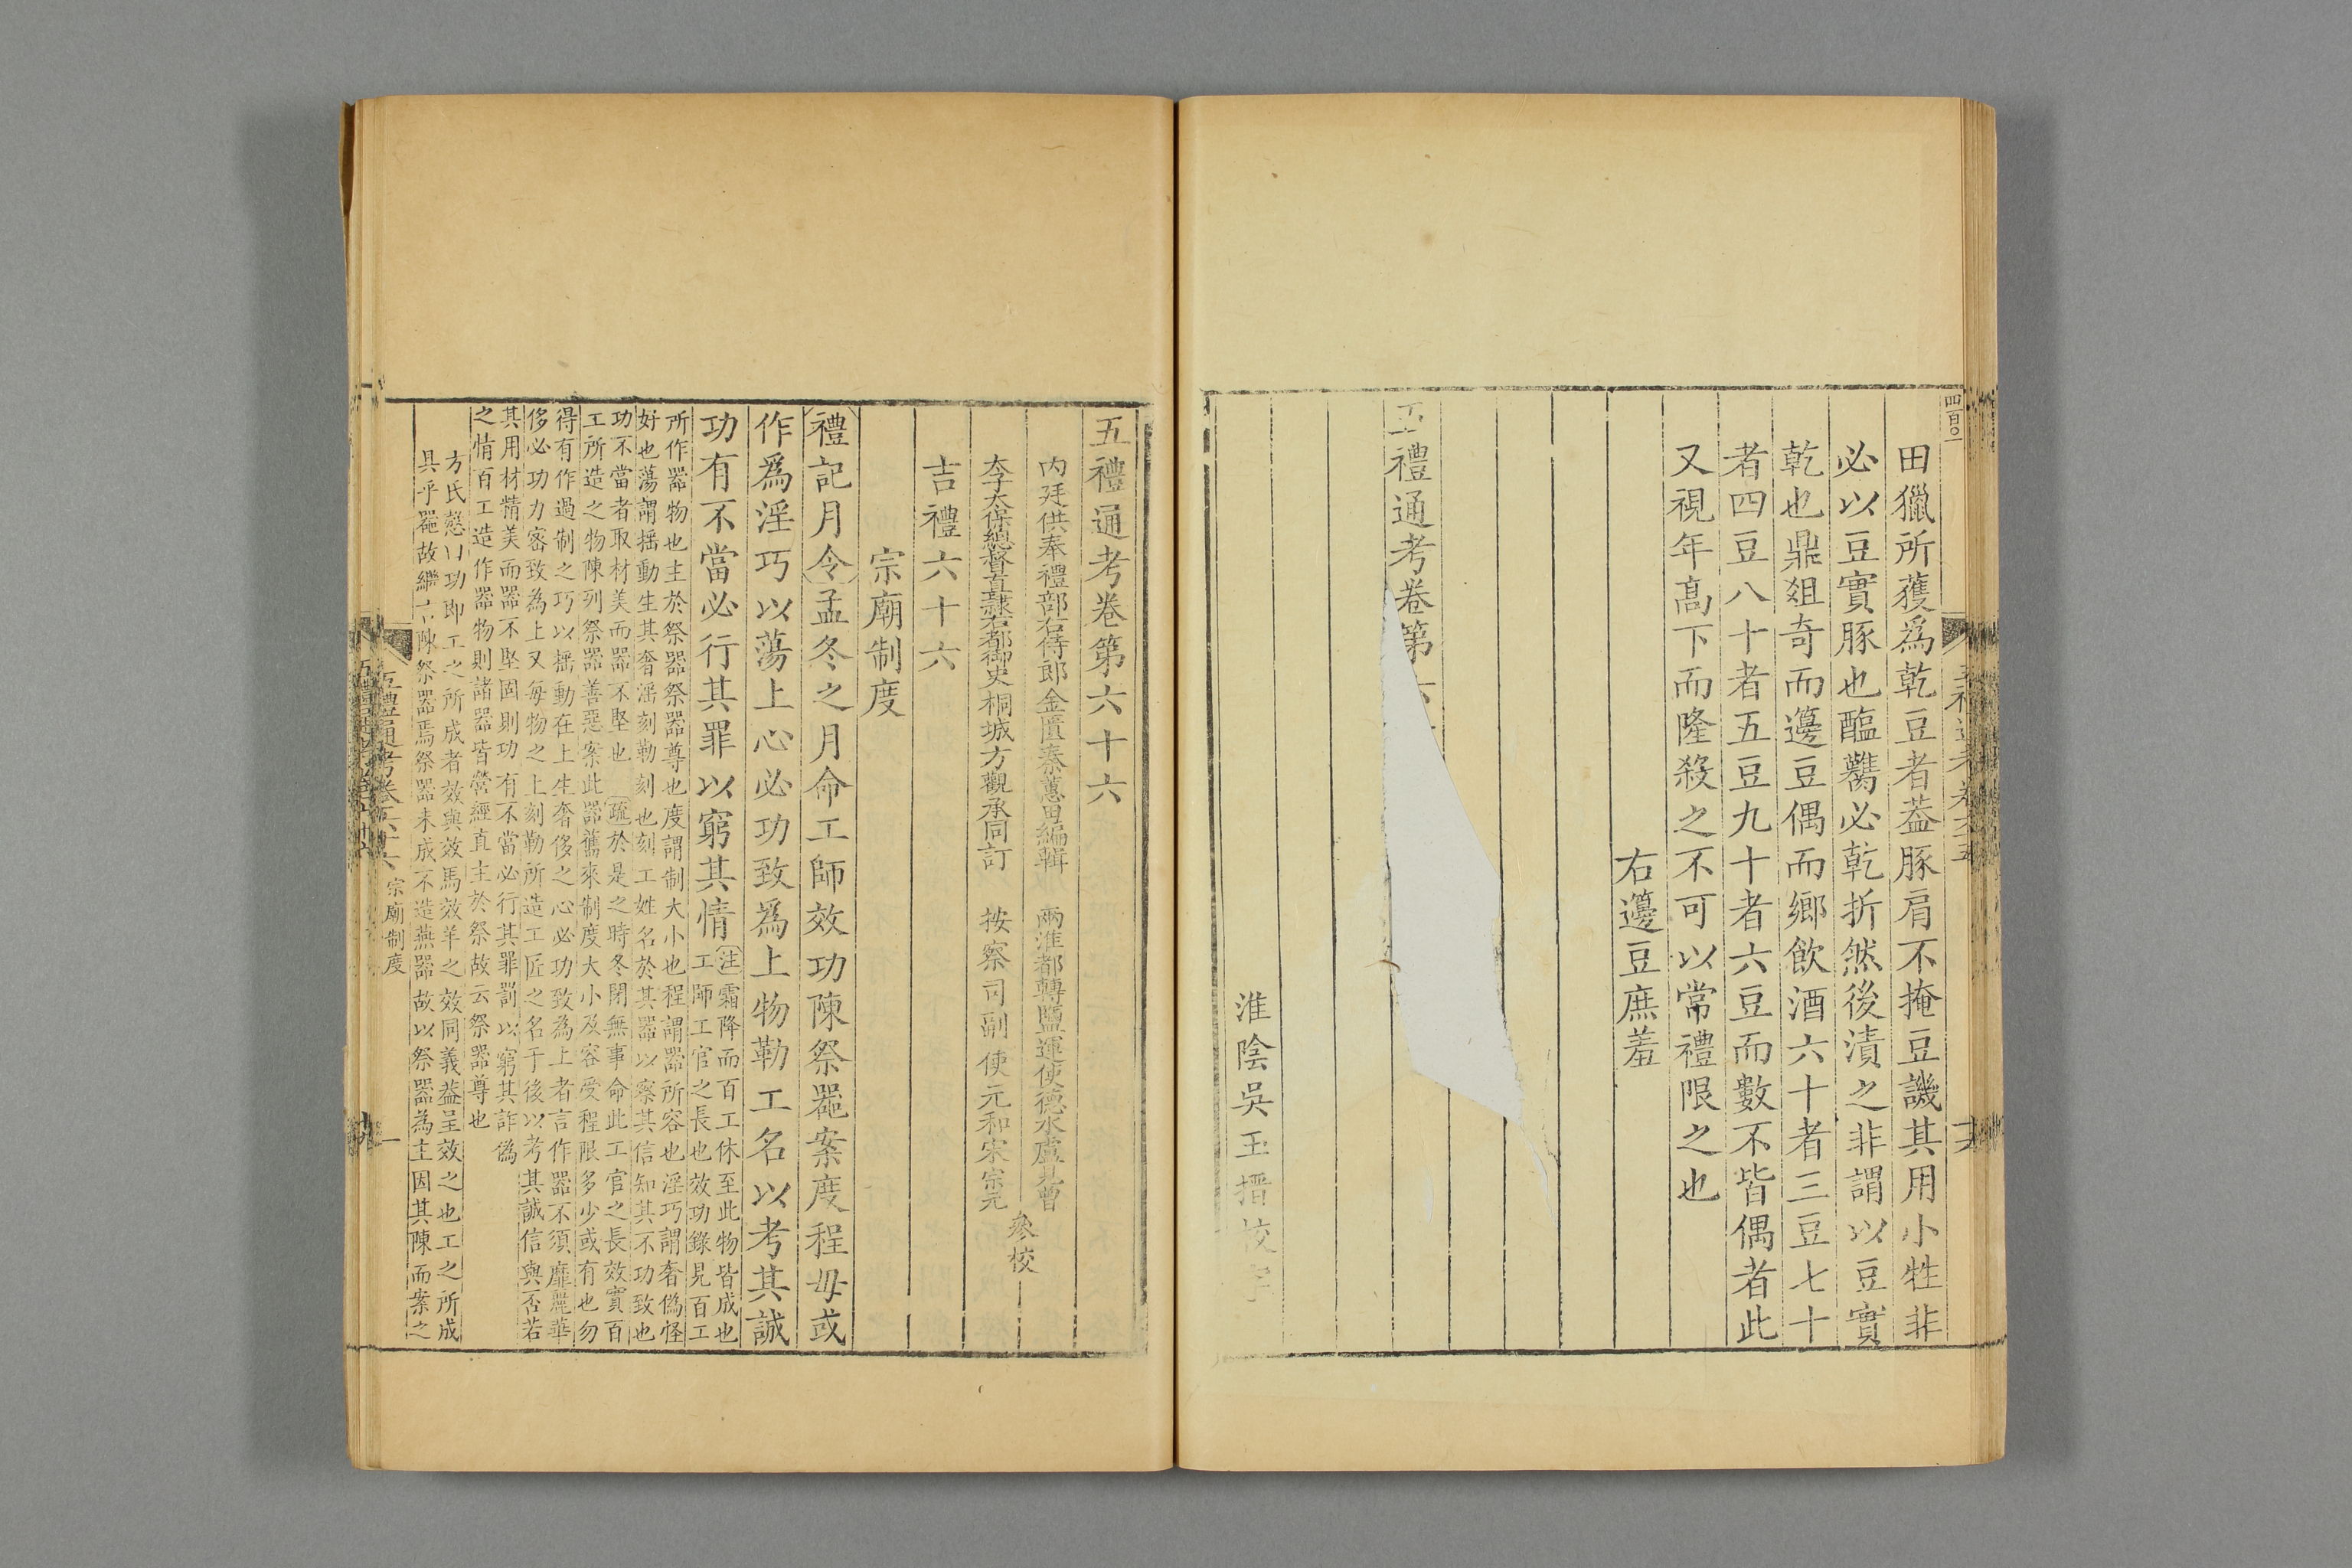 四百〇一
田獵所獲爲乾豆者葢豚肩不掩豆譏其用小牲非
必以豆實豚也醢臡必乾折然後漬之非謂以豆實
乾也鼎爼奇而籩豆偶而鄉飲酒六十者三豆七十
者四豆八十者五豆九十者六豆而數不皆偶者此
又視年髙下而隆殺之不可以常禮限之也
右籩豆庶羞
五禮通考卷第六
淮陰吳玉搢校字
五禮通考卷第六十六
内廷供奉禮部右侍郎金匱秦蕙田編輯 兩淮都轉鹽運使德水盧見曾
太子太保總督直隷右都御史桐城方觀承同訂 按察司副使元和宋宗元
參校
吉禮六十六
宗廟制度
禮記月令孟冬之月命工師效功陳祭器案度程毋或
作爲淫巧以蕩上心必功致爲上物勒工名以考其誠
功有不當必行其罪以窮其情
注霜降而百工休至此物皆成也
工師工官之長也效功錄見百工
所作器物也主於祭器祭器尊也度謂制大小也程謂器所容也淫巧謂奢偽怪
好也蕩謂揺動生其奢淫刻勒刻也刻工姓名於其器以察其信知其不功致也
功不當者取材美而器不堅也 疏於是之時冬閉無事命此工官之長效實百
工所造之物陳列祭器善惡案此器舊來制度大小及容受程限多少或有也勿
得有作過制之巧以揺動在上生奢侈之心必功致為上者言作器不須靡麗華
侈必功力宻致為上又每物之上刻勒所造工匠之名于後以考其誠信與否若
其用材精美而器不堅固則功有不當必行其罪罰以窮其詐偽
之情百工造作器物則諸器皆營經直主於祭故云祭器尊也
方氏慤曰功即工之所成者效與效馬效羊之效同義葢呈效之也工之所成
具乎器故繼以陳祭器焉祭器未成不造燕器故以祭器為主因其陳而案之
五禮通考卷六十六 宗廟制度
一